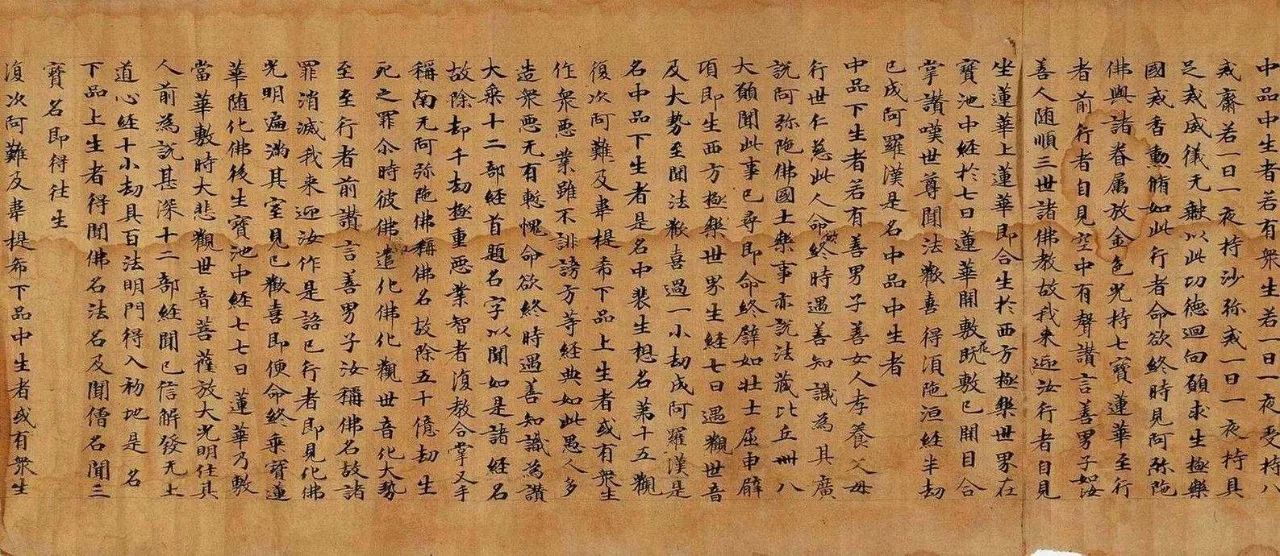 中品中生者若有衆生若一日一夜受持八
戒齋若一日一夜持沙弥戒一日一夜持具
足戒威儀无缺以此功德迴向願求生極樂
國戒香動脩如此行者命欲終時見阿弥陁
佛與諸眷属放金色光持七寶蓮華至行
者前行者自見空中有聲讃言善男子如汝
善人随順三世諸佛教故我来迎汝行者自見
坐蓮華上蓮華即合生於西方極樂世界在
寶池中経於七日蓮華開敷既敷已開目合
掌讃嘆世尊聞法歡喜得湏陁洹経半劫
已成阿羅漢是名中品中生者
中品下生者若有善男子善女人孝養父母
行世仁慈此人命欲終時遇善知識為其廣
說阿弥陁佛國土樂事亦說法藏比丘卌八
大願聞此事已尋即命終譬如壮士屈申臂
項即生西方極樂世界生経七日遇觀世音
及大勢至聞法歡喜過一小劫成阿羅漢是
名中品下生者是名中輩生想名第十五觀
復次阿難及韋提希下品上生者或有衆生
作衆惡業雖不誹謗方等経典如此愚人多
造衆惡无有慙愧命欲終時遇善知識為讃
大乗十二部経首題名字以聞如是諸経名
故除却千劫極重惡業智者復教合掌叉手
稱南无阿弥陁佛稱佛名故除五十億劫生
死之罪尒時彼佛遣化佛化觀世音化大勢
至至行者前讃言善男子汝稱佛名故諸
罪消滅我来迎汝作是語已行者即見化佛
光明遍滿其室見已歡喜即便命終乗寶蓮
華随化佛後生寶池中経七七日蓮華乃敷
當華敷時大悲觀世音菩薩放大光明住其
人前為說甚深十二部経聞已信解發无上
道心経十小劫具百法明門得入初地是名
下品上生者得聞佛名法名及聞僧名聞三
寶名即得往生
復次阿難及韋提希下品中生者或有衆生